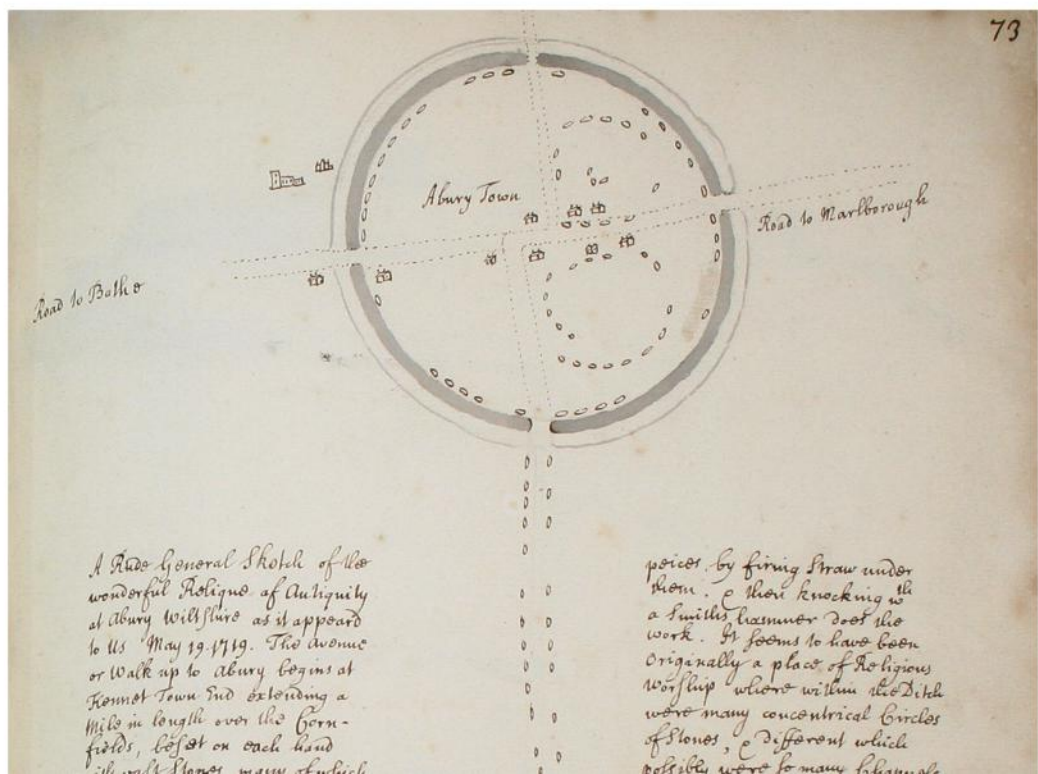 73
Abury Town
Road to Marlborough
Road to Bathe
A Rude General Sketch of the
wonderful Relique of Antiquity
at Abury Wiltshire as it appeard
to Us May 19. 1719. The Avenue
or Walk up to Abury begins at
Kennet Town End extending a
Mile in length over the Corn-
fields, beset on each hand
with vast Stones many of which
peices by firing Straw under
them. & then knocking wth
a Smiths hammer does the
work. It seems to have been
Originally a place of Religious
Worship where within the Ditch
were many concentrical Circles
of Stones, & different which
possibly were so many